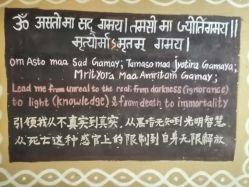 ॐ असतो मा सद् गमय। तमसो मा ज्योतिर्गमय।।
मृत्योर्माऽमृतम् गमय।
om Asto maa Sad Gamay; Tamaso maa Jyotira Gamaya;
Mrityora Maa Amritam Gamay;
Lead me from unreal to the real; from darkness (ignorance)
to light (knowledge) & from death to immortality
引领我从不真实到真实，从黑暗无知到光明智慧
从死亡这种感官上的限制到自身无限解放